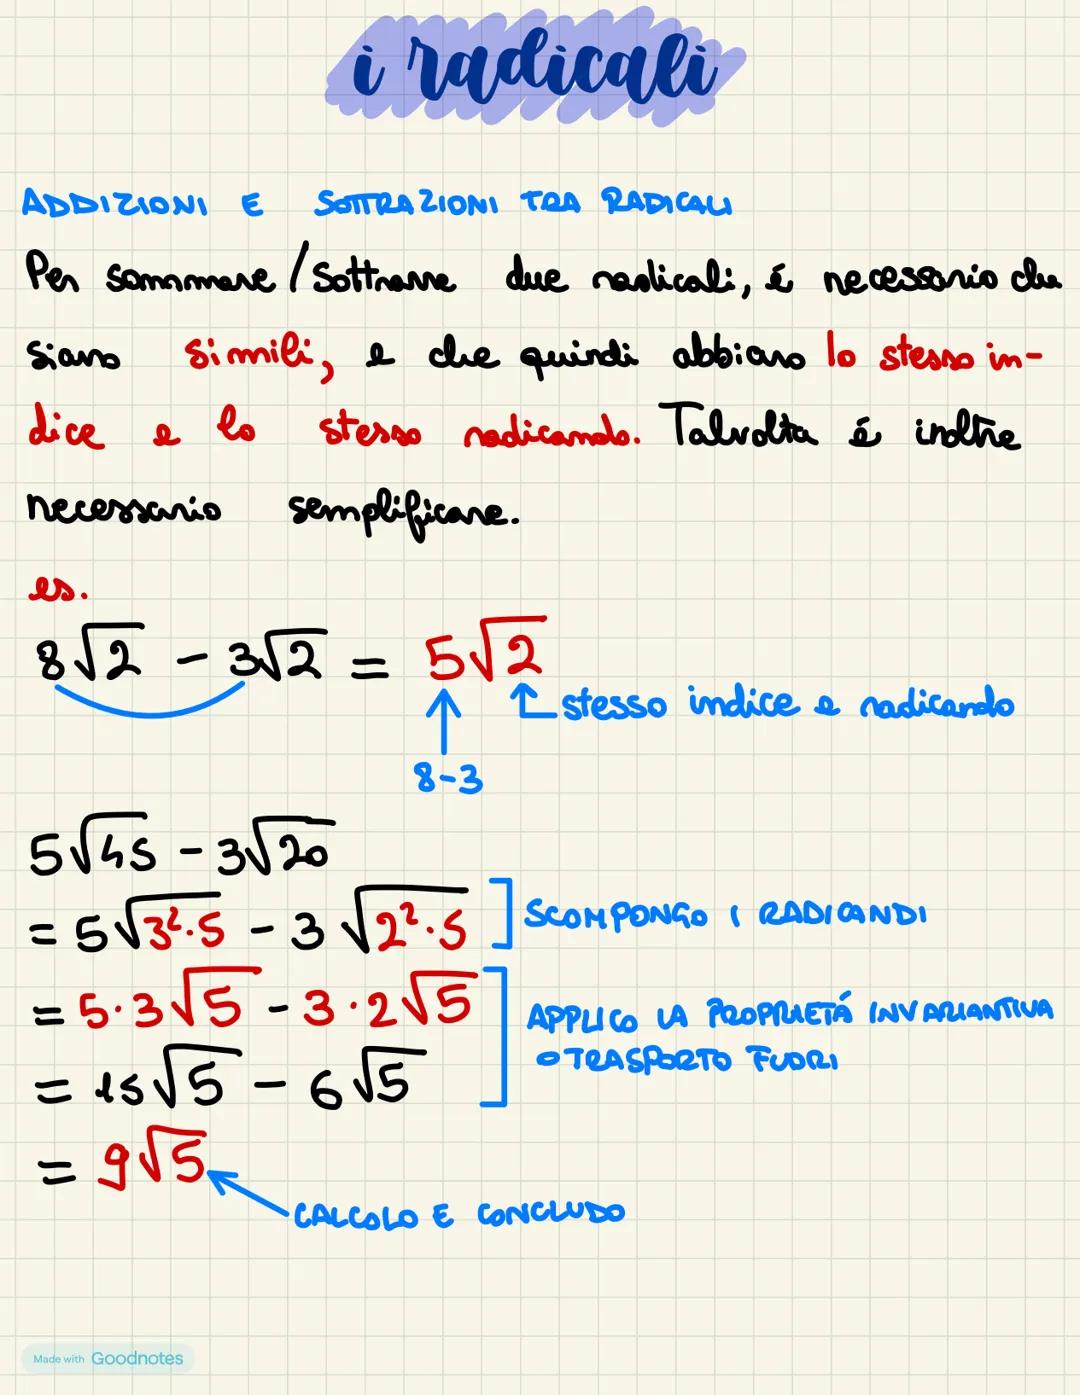 i radicali
ADDIZIONI E SOTTRAZIONI TRA RADICALI
Per sommare / Sottrarre due radicali, é necessario che
siano simili, e che quindi abbiano lo stesso in-
dice e lo stesso radicando. Talvolta é inoltre
necessario semplificare.
es.
8√2 - 3√2 = 5√2
stesso indice e radicando
8-3
5√45 - 3√20
= 5√3²·5 - 3√2²·5 SCOMPONGO I RADICANDI
= 5·3√5 - 3·2√5 APPLICO LA PROPRIETÁ INVARIANTIVA
O TRASPORTO FUORI
= 15√5 - 6√5
= 9√5
CALCOLO E CONCLUDO
Made with Goodnotes